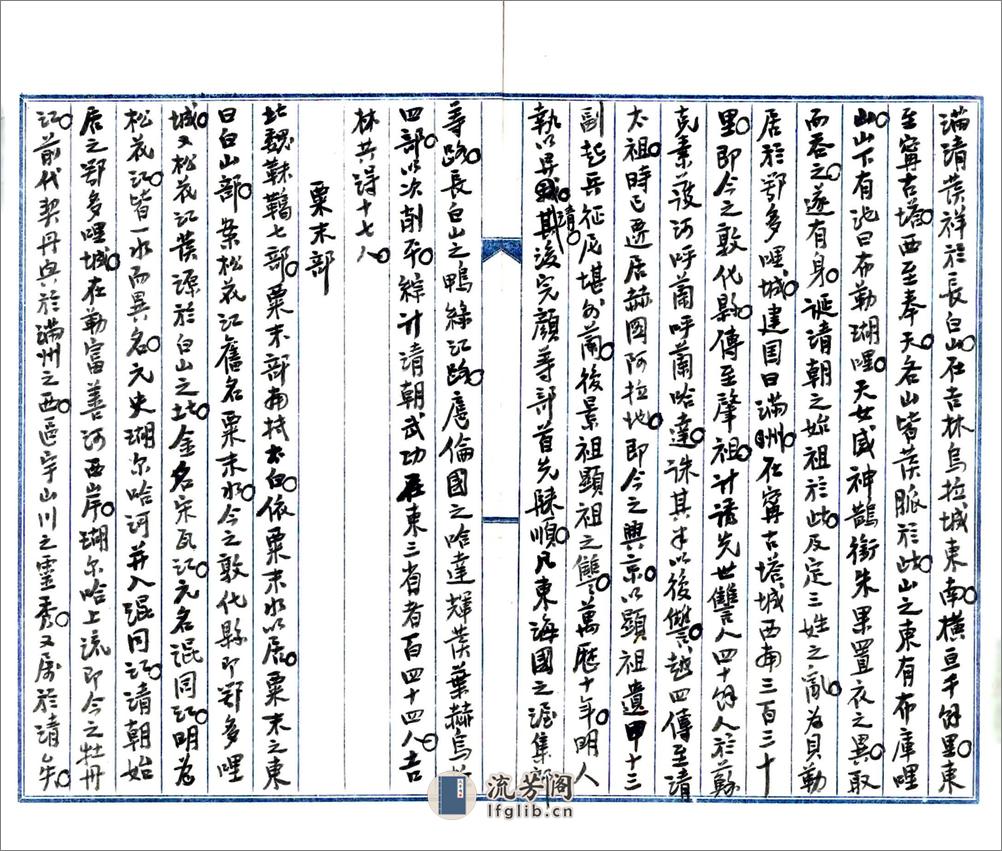 滿清發祥於長白山在吉林烏拉城東南橫亘千餘里東
至寧古塔西至奉天各山皆發脈於此山之東有布庫哩
山山下有池曰布勒瑚哩天女感神鵲銜朱果置衣之異取
而吞之遂有身誕清朝之始祖於此及定三姓之亂為貝勒
居於鄂多哩城建国曰滿洲在寧古塔城西南三百三十
里即今之敦化縣傳至肇祖计誘先世讐人四十餘人於蘇
克素護河呼蘭呼蘭哈達誅其半以後讐越四傳至清
太祖時已遷居赫圖阿拉地即今之興京以顯祖遺甲十三
副起兵征尼堪外蘭後景祖顯祖之讐萬歷十年明人
執以畀清其後完顏等部首先歸順凡東海國之渥集部
等路長白山之鴨綠江路扈倫國之哈達輝發葉赫烏拉
四部以次削平綜计清朝武功在東三省者百四十四人吉
林共得十七人
粟末部
北魏靺鞨七部粟末部南抵太白依粟末水以居粟末之東
曰白山部案松花江舊名粟末水今之敦化縣即鄂多哩
城又松花江發源於白山之北金名宋瓦江元名混同江明為
松花江皆一水而異名元史瑚尔哈河并入混同江清朝始
居之鄂多哩城在勒富善河西岸瑚尔哈上流即今之牡丹
江前代契丹興於滿州之西區宇山川之靈秀又屬於清矣
流芳阁
lfglib.cn